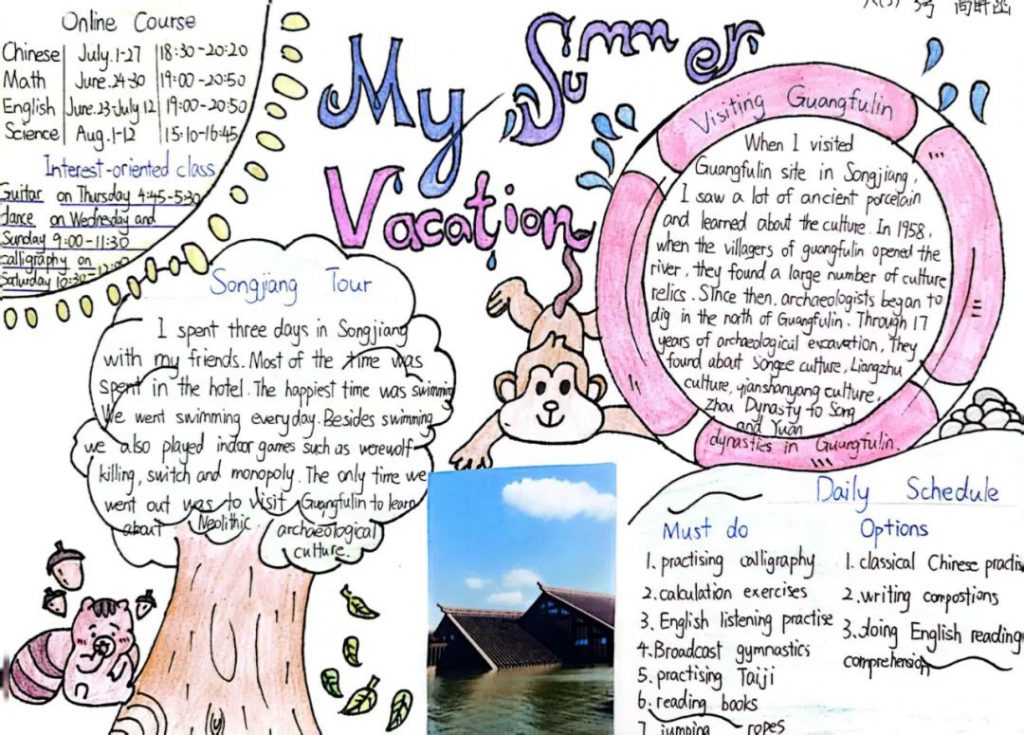 3号
Online Course
Chinese July.1-27 18:30-20:20
Math June.24-30 19:00-20:50
English June.23-July 12 19:00-20:50
Science Aug.1-12 15:10-16:45
Interest-oriented class
Guitar on Thursday 4:45-5:30
dance on Wednesday and
Sunday 9:00-11:30
calligraphy on
Saturday 10:30 12:00
My Summer
Vacation
Visiting Guangfulin
When I visited
Guangfulin site in Songjiang,
I saw a lot of ancient porcelain
and learned about the culture. In 1958,
when the villagers of guangfulin opened the
river, they found a large number of culture
relics. Since then, archaeologists began to
dig in the north of Guangfulin. Through 17
years of archaeological excavation, They
found about Songze culture, Liangzhu
culture, qianshanyang culture,
Zhou Dynasty to Song
and Yuan
dynasties in Guangfulin.
Songjiang Tour
I spent three days in Songjiang
with my friends. Most of the time was
spent in the hotel. The happiest time was swimming
We went swimming everyday. Besides swimming,
we also played indoor games such as werewolf
killing, switch and monopoly. The only time we
went out was to visit Guangfulin to learn
about Neolithic archaeological
culture.
Daily Schedule
Must do
1. practising calligraphy
2. calculation exercises
3. English listening practise
4. Broadcast gymnastics
5. practising Taiji
6. reading books
7. jumping ropes
Options
1. classical Chinese practise
2. writing compostions
3. doing English reading
comprehension